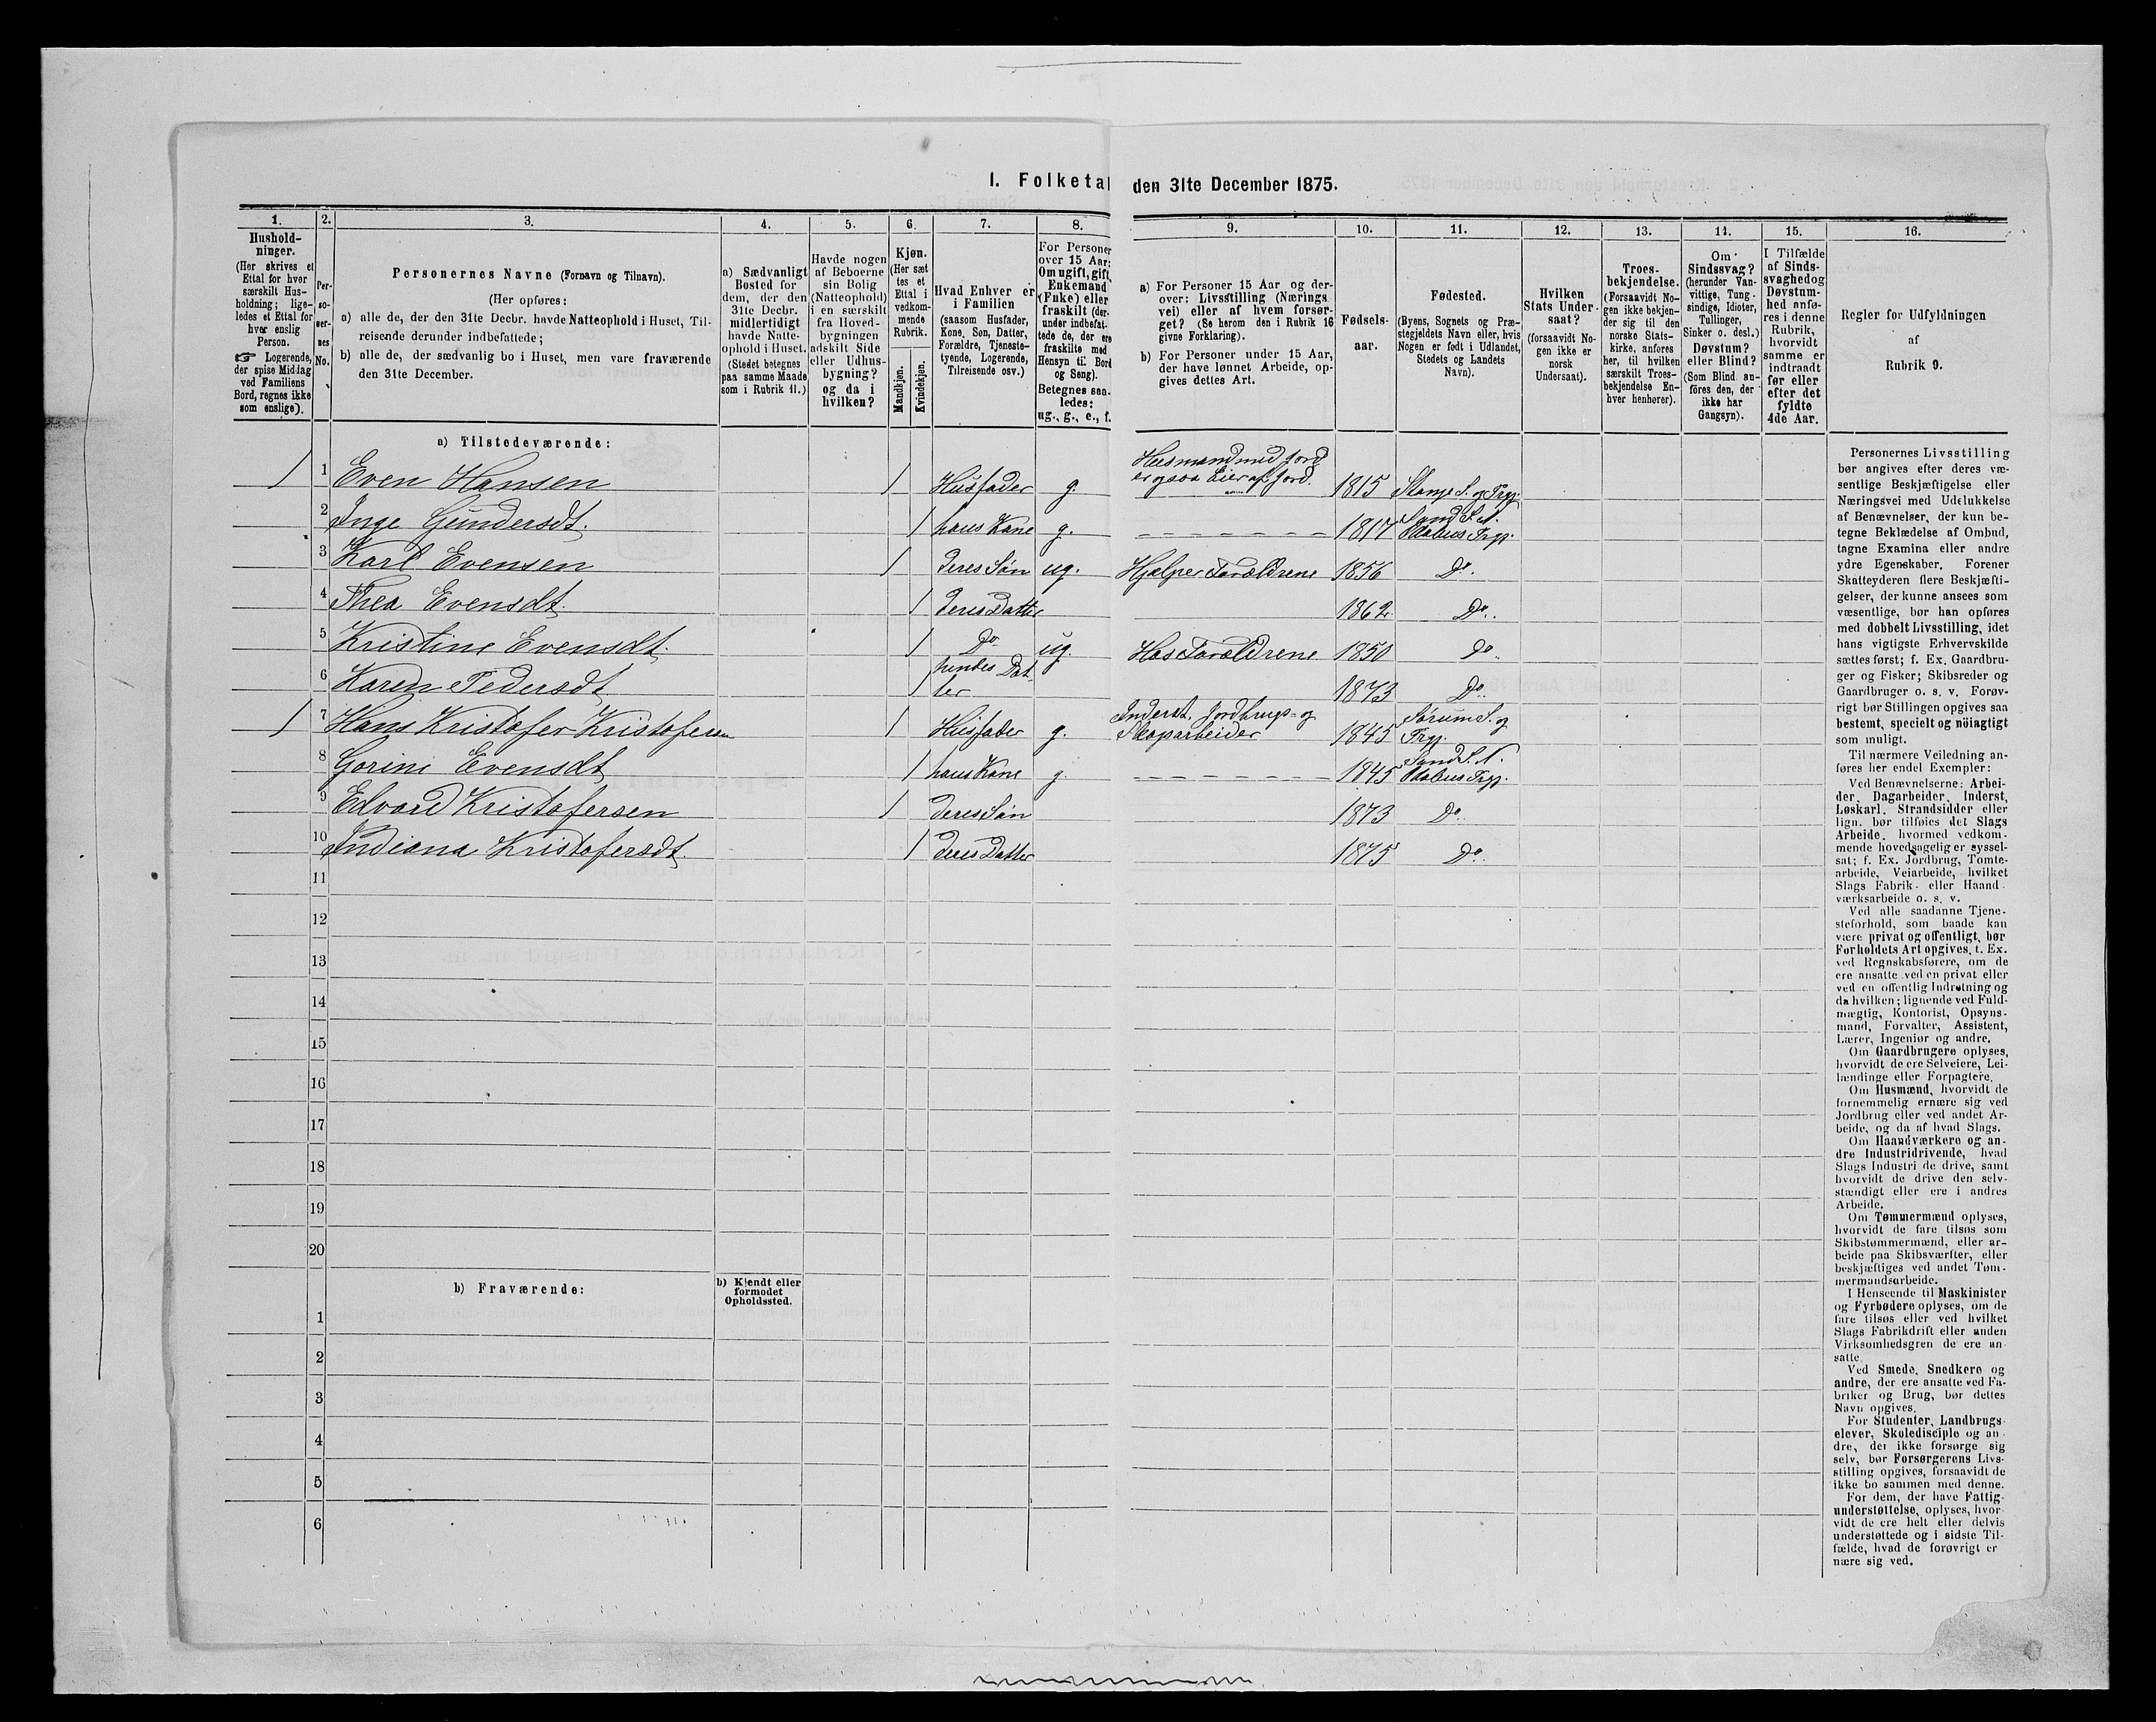 I. Folketal
den 31te December 1875.
1.
2.
3.
4.
5.
6.
7.
8.
9.
10.
11.
12.
13.
14.
15.
16.
Hushold-
ninger.
(Her skrives et
Ettal for hver
særskilt Hus-
holdning; lige-
ledes et Ettal for
hver enslig
Person.
☞ Logerende,
der spise Middag
ved Familiens
Bord, regnes ikke
som enslige).
Per-
so-
ner-
nes
No.
Personernes Navne (Fornavn og Tilnavn).
(Her opføres:
a) alle de, der den 31te Decbr. havde Natteophold i Huset, Til-
reisende derunder indbefattede;
b) alle de, der sædvanlig bo i Huset, men vare fraværende
den 31te December.
a) Sædvanligt
Bosted for
dem, der den
31te Decbr.
midlertidigt
havde Natte-
ophold i Huset.
(Stedet betegnes
paa samme Maade
som i Rubrik 11.)
Havde nogen
af Beboerne
sin Bolig
(Natteophold)
i en særskilt
fra Hoved-
bygningen
adskilt Side
eller Udhus-
bygning?
og da i
hvilken?
Kjøn.
(Her sæt
tes et
Ettal i
vedkom-
mende
Rubrik.
Mandkjøn.
Kvindekjøn.
Hvad Enhver er
i Familien
(saasom Husfader,
Kone, Søn, Datter,
Forældre, Tjeneste-
tyende, Logerende,
Tilreisende osv.)
For Personer
over 15 Aar:
Om ugift, gift,
Enkemand
(Enke) eller
fraskilt (der-
under indbefat-
tede de, der ere
fraskilte med
Hensyn til Bord
og Seng).
Betegnes saa-
ledes:
ug., g., e., f.
a) For Personer 15 Aar og der-
over: Livsstilling (Nærings
vei) eller af hvem forsør-
get? (Se herom den i Rubrik 16
givne Forklaring).
b) For Personer under 15 Aar,
der have lønnet Arbeide, op-
gives dettes Art.
Fødsels-
aar.
Fødested.
(Byens, Sognets og Præ-
stegjeldets Navn eller, hvis
Nogen er født i Udlandet,
Stedets og Landets
Navn).
Hvilken
Stats Under-
saat?
(forsaavidt No-
gen ikke er
norsk
Undersaat).
Troes-
bekjendelse.
(Forsaavidt No-
gen ikke bekjen-
der sig til den
norske Stats-
kirke, anføres
her, til hvilken
særskilt Troes-
bekjendelse En-
hver henhører).
Om
Sindssvag?
(herunder Van-
vittige, Tung-
sindige, Idioter,
Tullinger,
Sinker o. desl.)
Døvstum?
eller Blind?
(Som Blind an-
føres den, der
ikke har
Gangsyn).
I Tilfælde
af Sinds-
svaghed og
Døvstum-
hed anfø-
res i denne
Rubrik,
hvorvidt
samme er
indtraadt
før eller
efter det
fyldte
4de Aar.
Regler for Udfyldningen
af
Rubrik 9.
a) Tilstedeværende:
1 1 Even Hansen 1 Husfader g. Husmand med Jord
er ogsaa Eier af Jord. 1815 Stange S. og Prgj.
2 Inge Gundersdt. 1 hans Kone g. 1817 Sand S. N.
Odalens Prgj.
3 Karl Evensen 1 deres Søn ug. Hjelper Forældrene 1856 Do.
4 Thea Evensdt. 1 deres Datter 1862 Do.
5 Kristine Evensdt. 1 Do ug. Hos Forældrene 1850 Do.
6 Karen Pedersdt 1 hendes Dat-
ter 1873 Do.
1 7 Hans Kristofer Kristofersen 1 Husfader g. Inderst. Jordbrugs- og
Skovarbeider 1845 Sørum S. og
Prgj.
8 Gorine Evensdt 1 hans Kone g. 1845 Sand S. N.
Odalens Prgj.
9 Edvard Kristofersen 1 deres Søn 1873 Do.
10 Indiana Kristofersdt. 1 deres Datter 1875 Do.
11
12
13
14
15
16
17
18
19
20
b) Fraværende:
b) Kjendt eller
formodet
Opholdssted.
1
2
3
4
5
6
Personernes Livsstilling
bør angives efter deres væ-
sentlige Beskjæftigelse eller
Næringsvei med Udelukkelse
af Benævnelser, der kun be-
tegne Beklædelse af Ombud,
tagne Examina eller andre
ydre Egenskaber. Forener
Skatteyderen flere Beskjæfti-
gelser, der kunne ansees som
væsentlige, bør han opføres
med dobbelt Livsstilling, idet
hans vigtigste Erhvervskilde
sættes først; f. Ex. Gaardbru-
ger og Fisker; Skibsreder og
Gaardbruger o. s. v. Forøv-
rigt bør Stillingen opgives saa
bestemt, specielt og nöiagtigt
som muligt.
Til nærmere Veiledning an-
føres her endel Exempler:
Ved Benævnelserne: Arbei-
der, Dagarbeider, Inderst,
Løskarl, Strandsidder eller
lign. bør tilføies det Slags
Arbeide, hvormed vedkom-
mende hovedsagelig er syssel-
sat; f. Ex. Jordbrug, Tomte-
arbeide, Veiarbeide, hvilket
Slags Fabrik- eller Haand-
værksarbeide o. s. v.
Ved alle saadanne Tjene-
steforhold, som baade kan
være privat og offentligt, bør
Forholdets Art opgives, t. Ex.
ved Regnskabsførere, om de
ere ansatte ved en privat eller
ved en offentlig Indretning og
da hvilken; lignende ved Fuld-
mægtig, Kontorist, Opsyns-
mand, Forvalter, Assistent,
Lærer, Ingeniør og andre.
Om Gaardbrugere oplyses,
hvorvidt de ere Selveiere, Lei-
lændinge eller Forpagtere.
Om Husmænd, hvorvidt de
fornemmelig ernære sig ved
Jordbrug eller ved andet Ar-
beide, og da af hvad Slags.
Om Haandværkere og an-
dre Industridrivende, hvad
Slags Industri de drive, samt
hvorvidt de drive den selv-
stændigt eller ere i andres
Arbeide.
Om Tømmermænd oplyses,
hvorvidt de fare tilsøs som
Skibstømmermænd, eller ar-
beide paa Skibsværfter, eller
beskjæftiges ved andet Tøm-
mermandsarbeide.
I Henseende til Maskinister
og Fyrbødere oplyses, om de
fare tilsøs eller ved hvilket
Slags Fabrikdrift eller anden
Virksomhedsgren de ere an-
satte.
Ved Smede, Snedkere og
andre, der ere ansatte ved Fa-
briker og Brug, bør dettes
Navn opgives.
For Studenter, Landbrugs-
elever, Skoledisciple og an-
dre, der ikke forsørge sig
selv, bør Forsørgerens Livs-
stilling opgives, forsaavidt de
ikke bo sammen med denne.
For dem, der have Fattig-
understøttelse, oplyses, hvor-
vidt de ere helt eller delvis
understøttede og i sidste Til-
fælde, hvad de forøvrigt er-
nære sig ved.